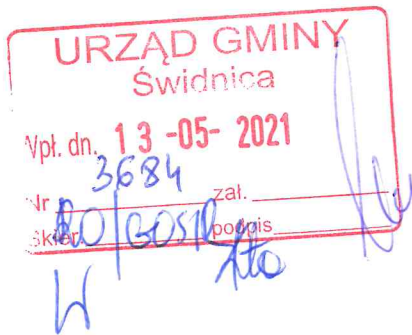 URZĄD GMINY
Świdnica
Wpł. dn. 13 -05- 2021
Nr 3684 zał.
Skier. podpis